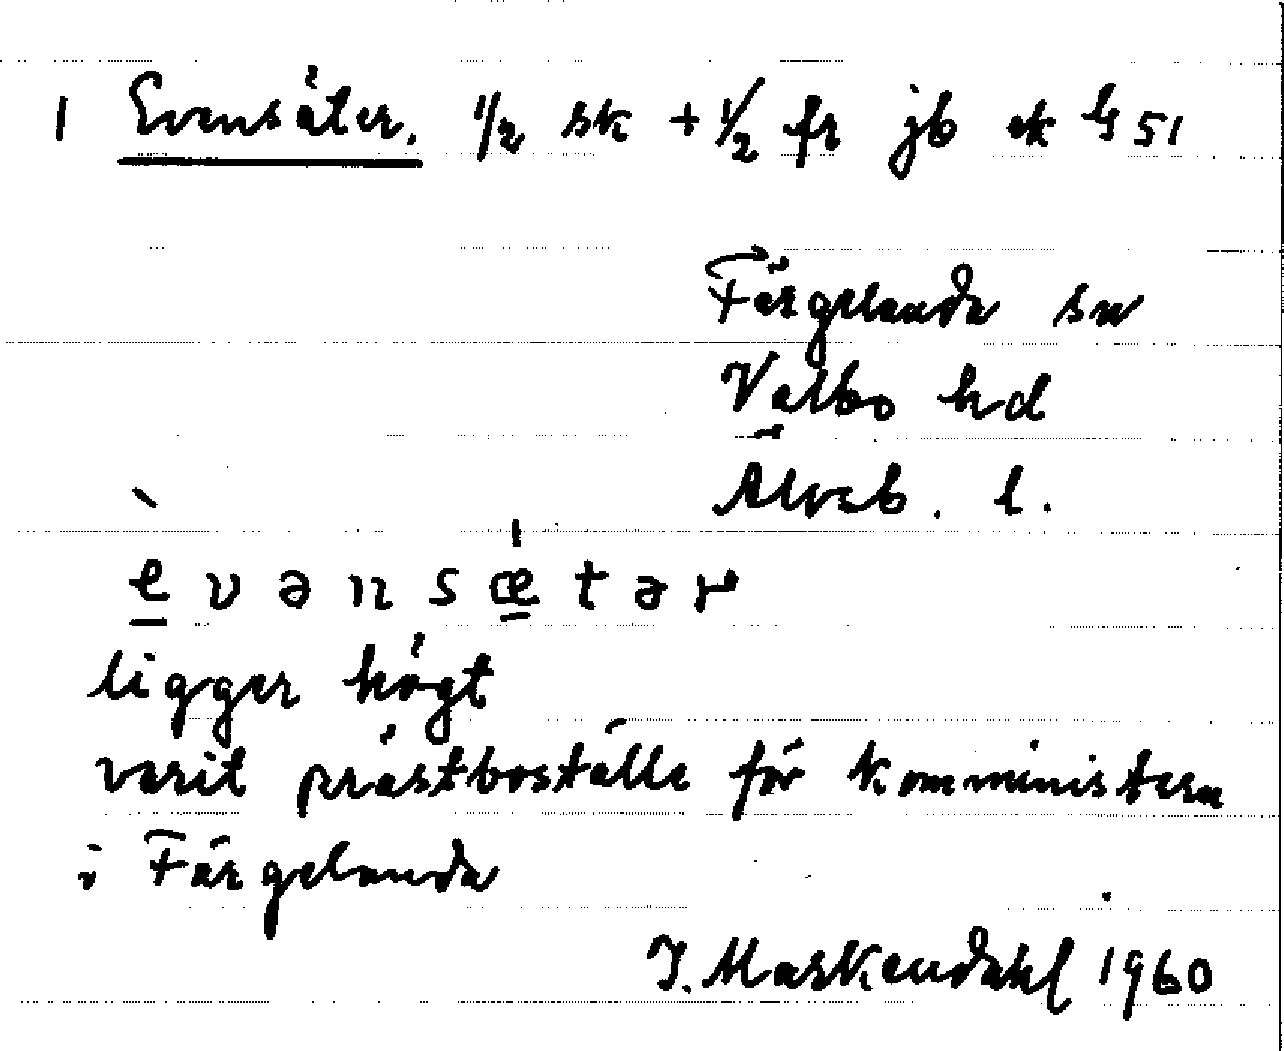 1 Evensäter. 1/2 sk + 1/2 fr jb ek G 51
Färgelanda sn
Valbo hd
Älvsb. l.
è v ə n s æ̍ t ə r
ligger högt
varit prästboställe för komministern
i Färgelanda
J. Markendahl 1960